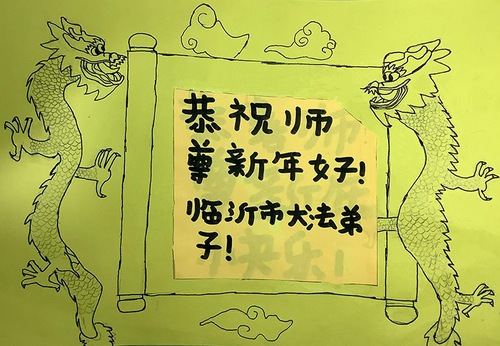 恭祝师
尊新年好!
临沂市大法弟
子!